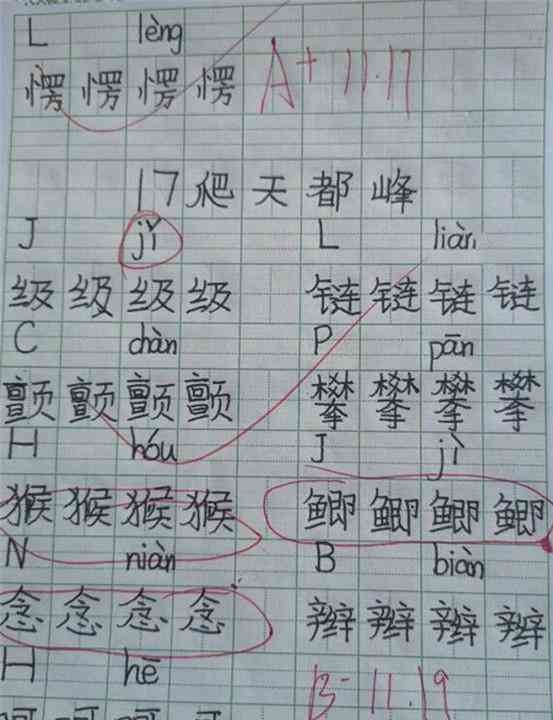 L lèng
愣 愣 愣 愣 A+ 11.17
17 爬 天 都 峰
J jǐ L liàn
级 级 级 级 链 链 链 链
C chàn P pān
颤 颤 颤 颤 攀 攀 攀 攀
H hóu J jì
猴 猴 猴 猴 鲫 鲫 鲫 鲫
N niàn B biàn
念 念 念 念 辫 辫 辫 辫
H hē B- 11.19